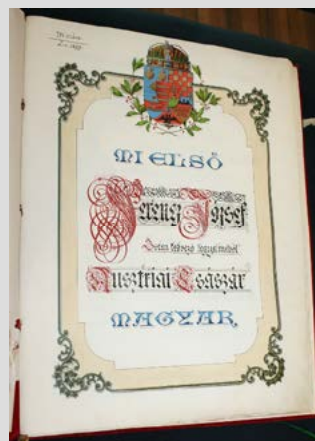 MI ELSŐ
Ferencz József
Isten kedvező kegyelméből
Ausztriai Császár
MAGYAR,